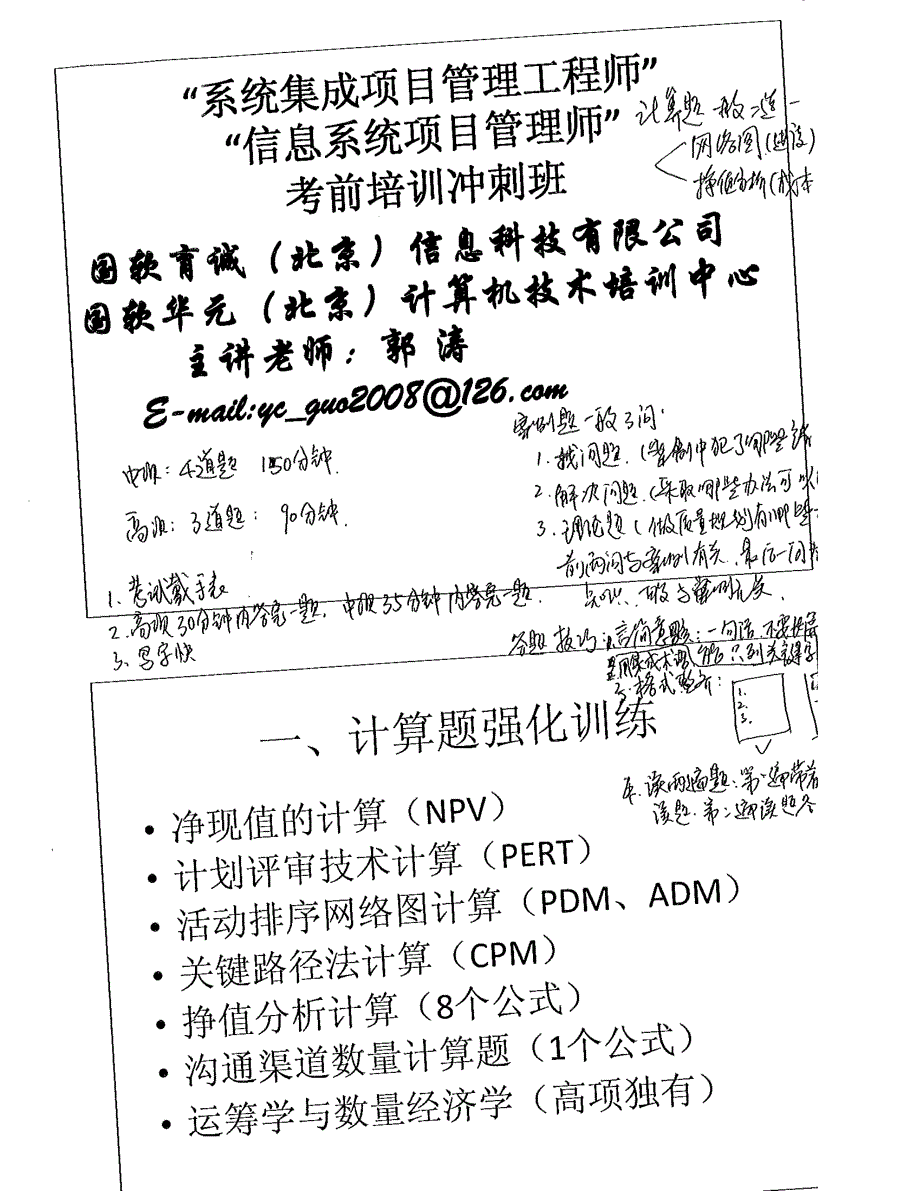 “系统集成项目管理工程师”
“信息系统项目管理师”
考前培训冲刺班
计算题一般2道
网络图(进度)
挣值分析(成本
国软育诚(北京)信息科技有限公司
国软华元(北京)计算机技术培训中心
主讲老师:郭 涛
E-mail:yc_guo2008@126.com
中项: 4道题 150分钟.
高项: 3道题: 90分钟.
案例题一般3问:
1. 找问题. (案例中犯了哪些错
2. 解决问题. (采取哪些办法可以
3. 理论题 (做质量规划有哪些
前两问与案例有关. 最后一问
知识. 一般与案例无关.
1. 考试戴手表
2. 高项30分钟内答完一题, 中项35分钟内答完一题.
3. 写字快
答题技巧: 1. 言简意赅: 一句话. 不要
只列关键字
3. 格式整齐:
1.
2.
3.
4. 读两遍题: 第一遍带着
读题. 第二遍读题
一、计算题强化训练
• 净现值的计算(NPV)
• 计划评审技术计算(PERT)
• 活动排序网络图计算(PDM、ADM)
• 关键路径法计算(CPM)
• 挣值分析计算(8个公式)
• 沟通渠道数量计算题(1个公式)
• 运筹学与数量经济学(高项独有)